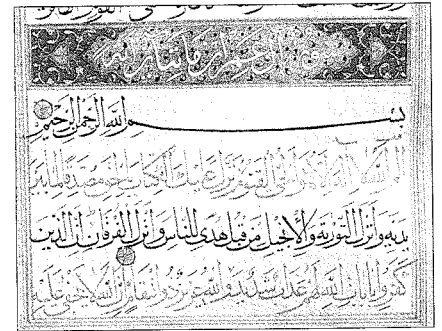 ال عمران مايتا ايه
بسم الله الرحمن الرحيم
الم الله لا اله الا هو الحي القيوم نزل عليك الكتاب بالحق مصدقا لما بين
يديه وانزل التورية والانجيل من قبل هدى للناس وانزل الفرقان ان الذين
كفروا بايات الله لهم عذاب شديد والله عزيز ذو انتقام ان الله لا يخفى عليه